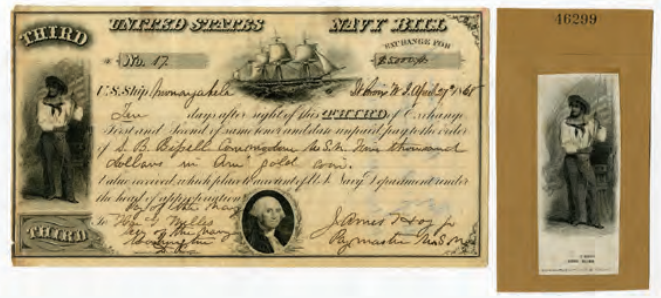 THIRD UNITED STATES NAVY BILL
EXCHANGE FOR
No. 17 $5000
U.S. Ship Monongahela St Croix W.I. April 27th 1868
Ten days after sight of this THIRD of Exchange
First and Second of same tenor and date unpaid, pay to the order
of S. B. Bissell Commodore U.S.N. thousand
dollars in Am gold coin.
Value received, which place to account of U.S. Navy Department under
the head of appropriation
Pay of the Navy
To Hon G Welles
Secy of the Navy
Washington
THIRD
James Hoy Jr
Paymaster U.S.N.
46299